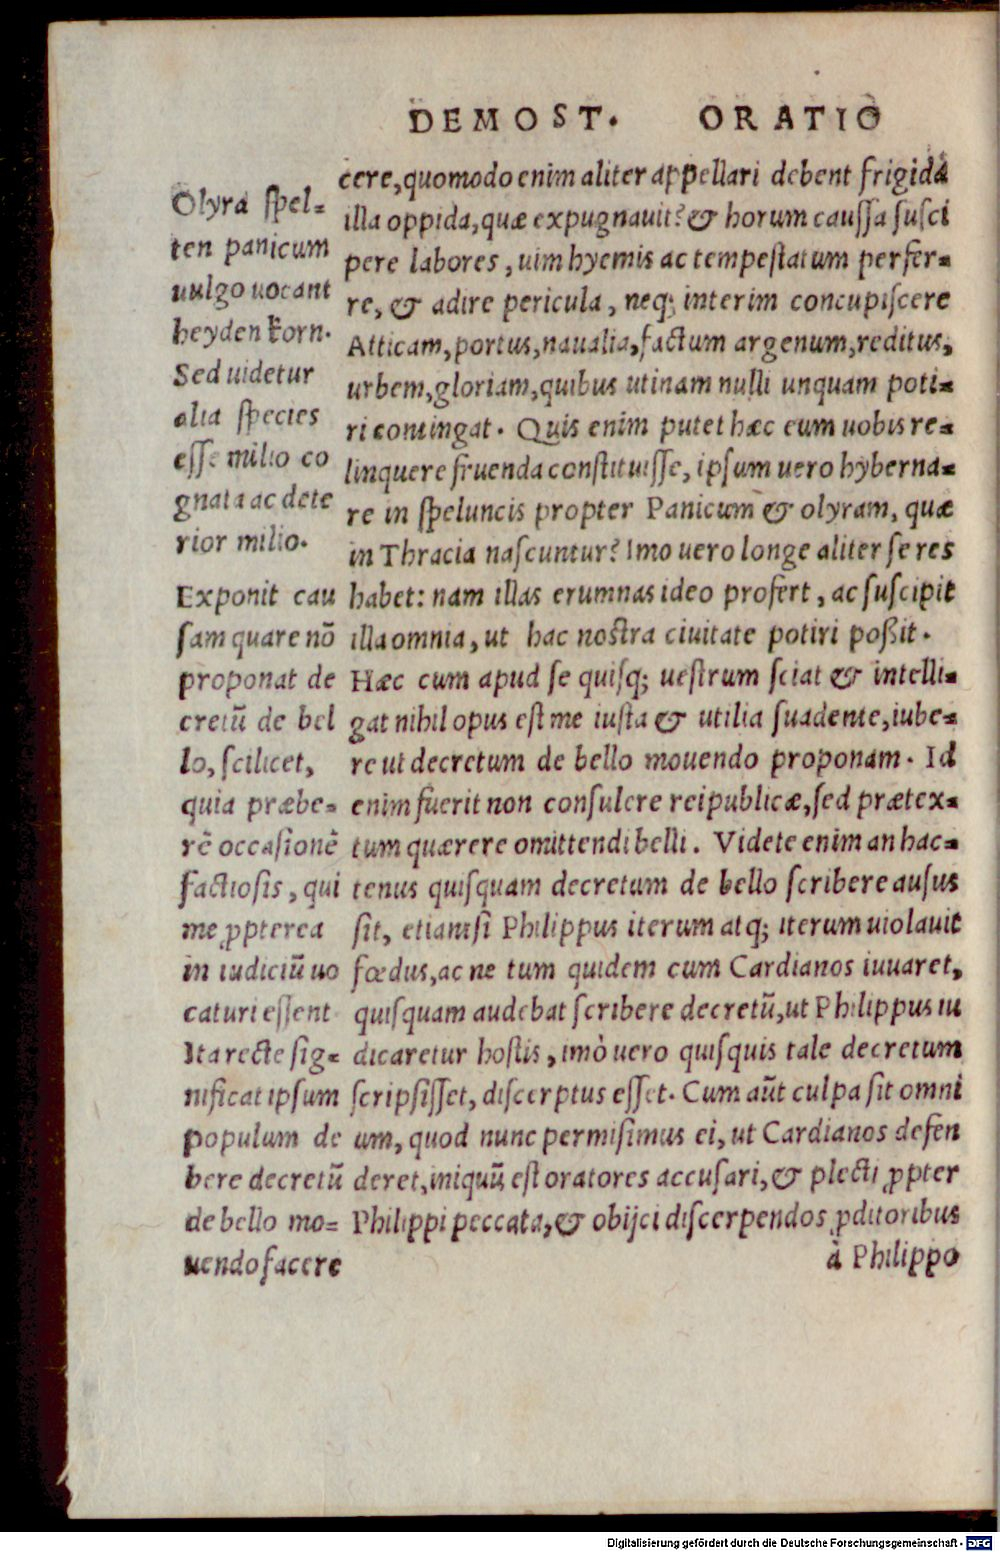 DEMOST. ORATIO
Olyra spel-
ten panicum
uulgo uocant
heyden korn.
Sed uidetur
alia species
esse milio co
gnata ac dete
rior milio.
Exponit cau
sam quare nõ
proponat de
cretũ de bel
lo, scilicet,
quia præbe-
rẽ occasionẽ
factiosis, qui
me ꝓpterea
in iudiciũ uo
caturi essent
Ita recte sig-
nificat ipsum
populum de
bere decretũ
de bello mo-
uendo facere
cere, quomodo enim aliter appellari debent frigida
illa oppida, quæ expugnauit? & horum caussa susci
pere labores, uim hyemis ac tempestatum perfer-
re, & adire pericula, neq; interim concupiscere
Atticam, portus, naualia, factum argenum, reditus,
urbem, gloriam, quibus utinam nulli unquam poti-
ri contingat. Quis enim putet hæc eum uobis re-
linquere fruenda constituisse, ipsum uero hyberna-
re in speluncis propter Panicum & olyram, quæ
in Thracia nascuntur? Imo uero longe aliter se res
habet: nam illas erumnas ideo profert, ac suscipit
illa omnia, ut hac nostra ciuitate potiri poßit.
Hæc cum apud se quisq; uestrum sciat & intelli-
gat nihil opus est me iusta & utilia suadente, iube-
re ut decretum de bello mouendo proponam. Id
enim fuerit non consulere reipublicæ, sed prætex-
tum quærere omittendi belli. Videte enim an hac-
tenus quisquam decretum de bello scribere ausus
sit, etiamsi Philippus iterum atq; iterum uiolauit
fœdus, ac ne tum quidem cum Cardianos iuuaret,
quisquam audebat scribere decretũ, ut Philippus iu
dicaretur hostis, imò uero quisquis tale decretum
scripsisset, discerptus esset. Cum aũt culpa sit omni
um, quod nunc permisimus ei, ut Cardianos defen
deret, iniquũ est oratores accusari, & plecti ꝓpter
Philippi peccata, & obijci discerpendos ꝓditoribus
à Philippo
Digitalisierung gefördert durch die Deutsche Forschungsgemeinschaft - DFG